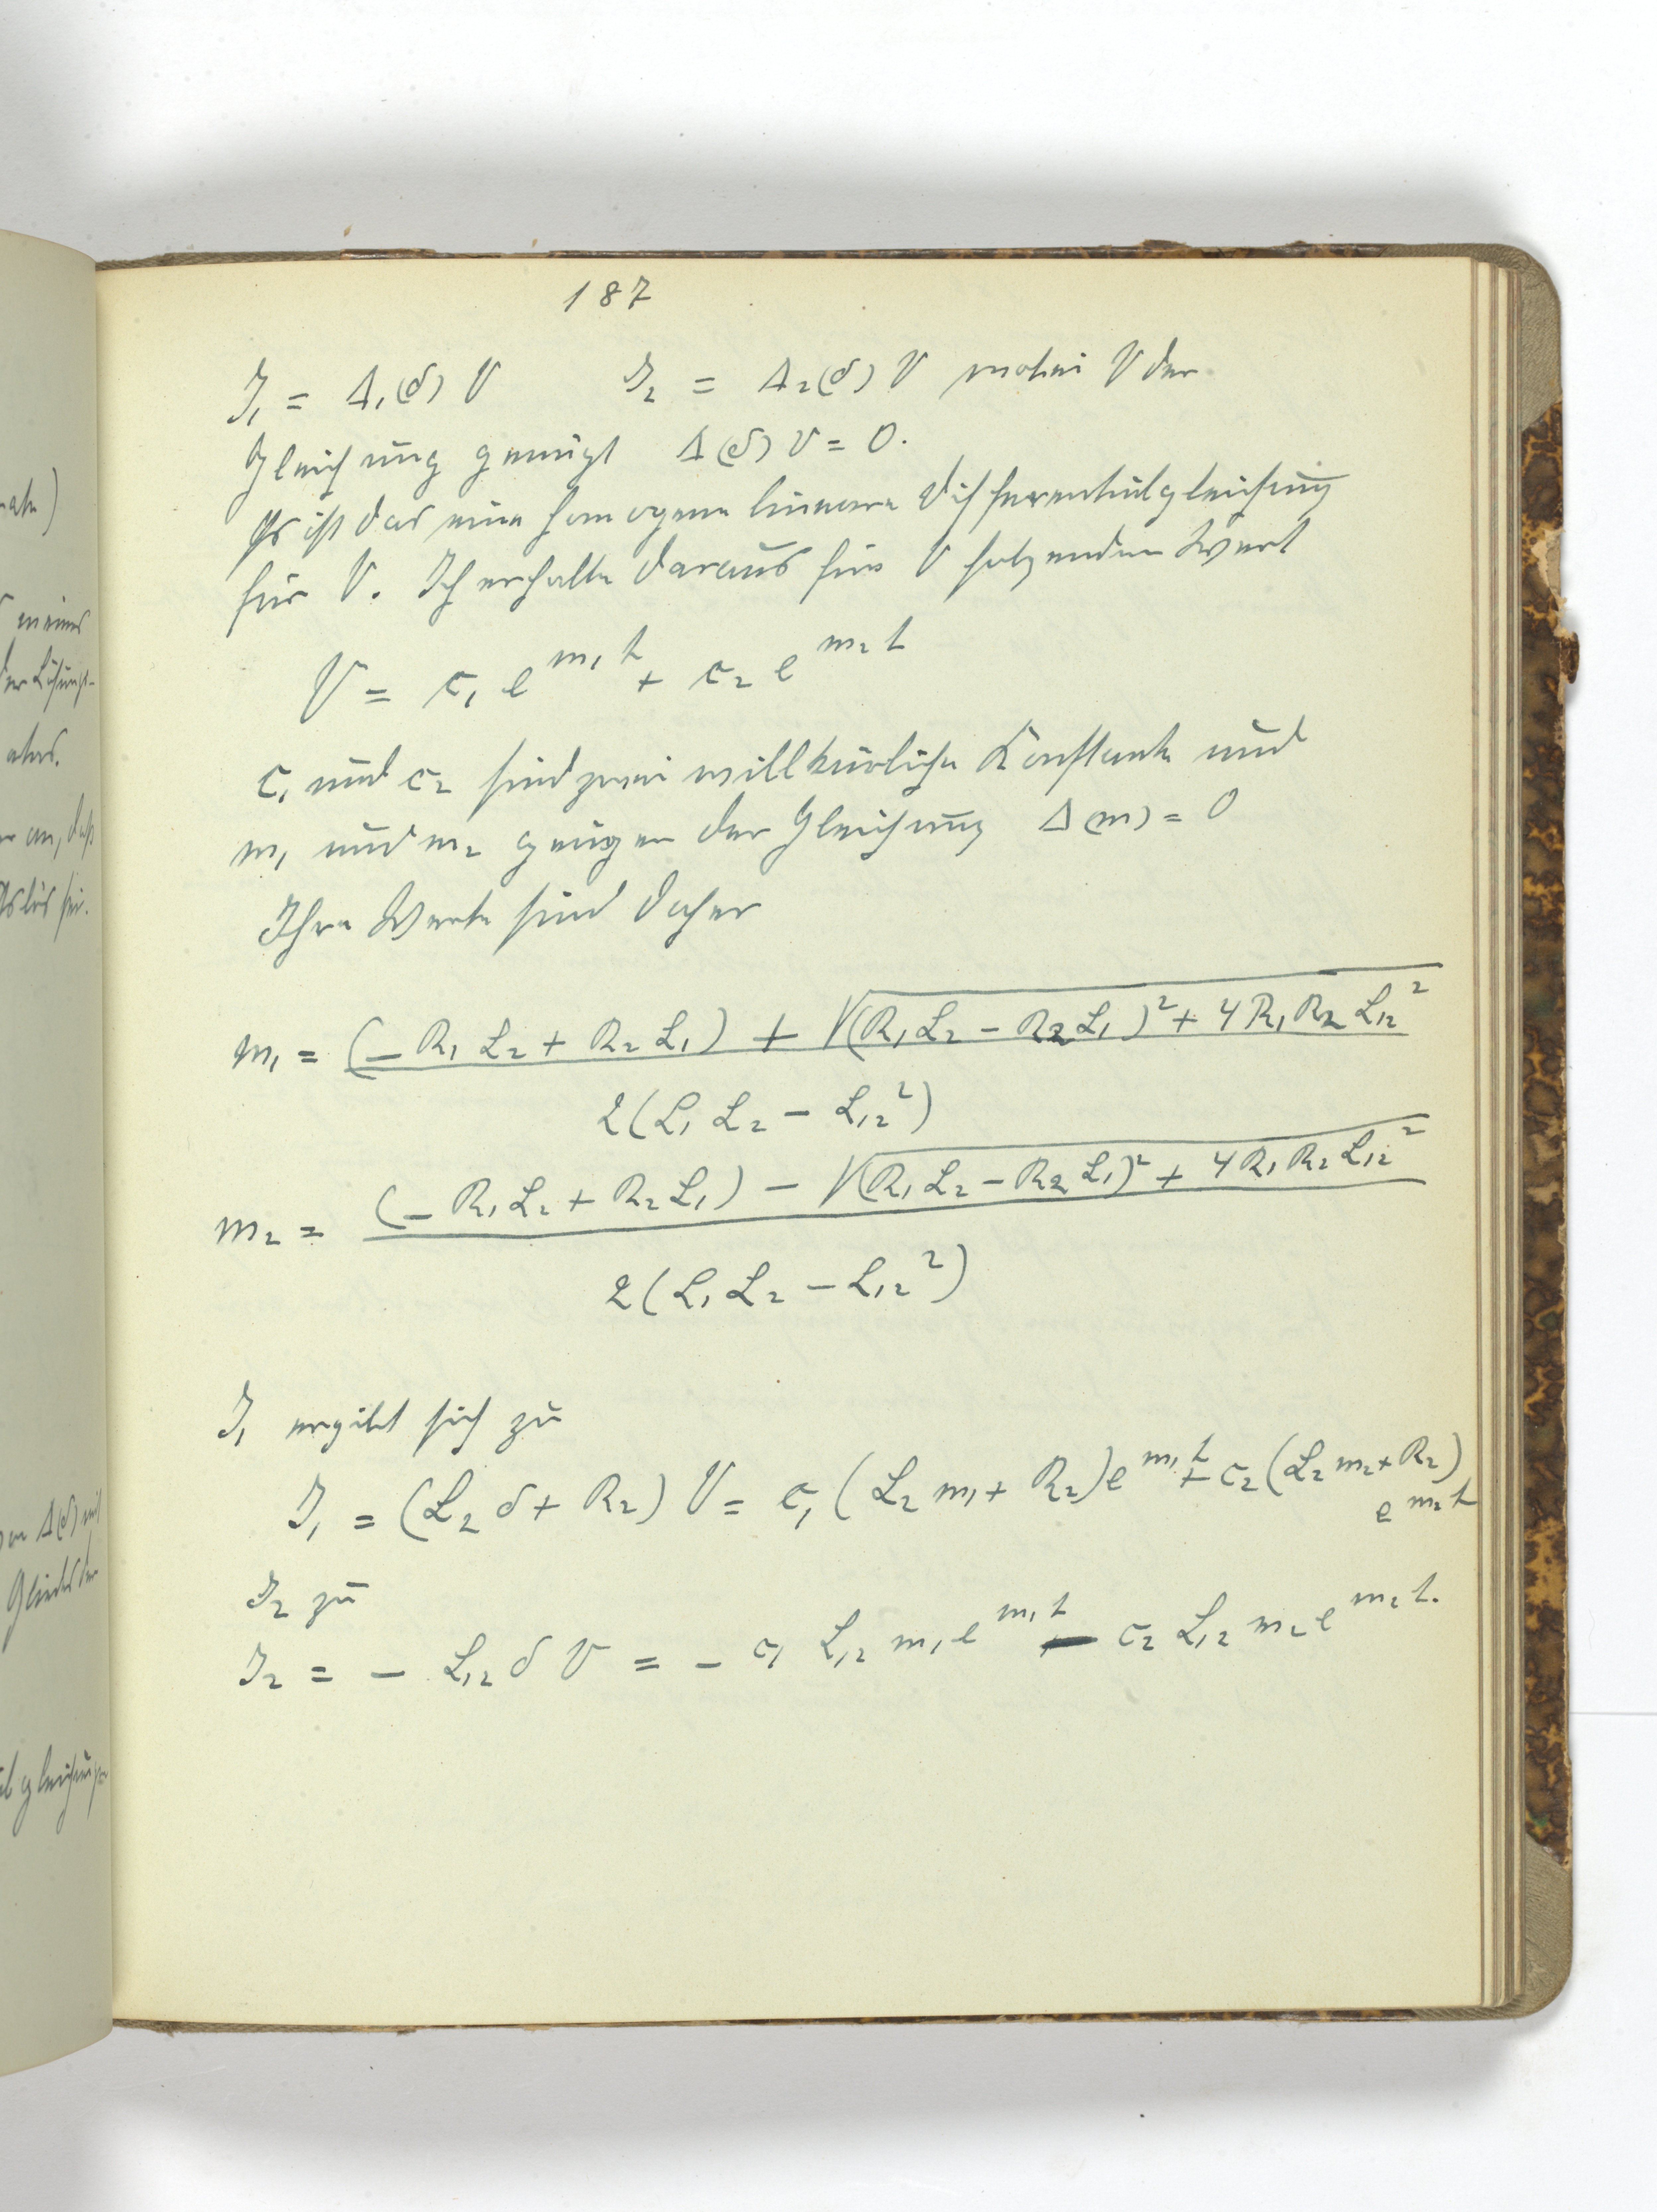 187
J₁ = Δ₁(δ) V J₂ = Δ₂(δ) V wobei V der
Gleichung genügt Δ(δ) V = 0.
Es ist das eine homogene lineare Differentialgleichung
für V. Ich erhalte daraus für V folgenden Wert
V = c₁ e^{m₁ t} + c₂ e^{m₂ t}
c₁ und c₂ sind zwei willkürliche Konstante und
m₁ und m₂ genügen der Gleichung Δ(m) = 0
Ihre Werte sind daher
m₁ = (− R₁ L₂ + R₂ L₁) + √((R₁ L₂ − R₂ L₁)² + 4 R₁ R₂ L₁₂²)
2(L₁ L₂ − L₁₂²)
m₂ = (− R₁ L₂ + R₂ L₁) − √((R₁ L₂ − R₂ L₁)² + 4 R₁ R₂ L₁₂²)
2(L₁ L₂ − L₁₂²)
J₁ ergibt sich zu
J₁ = (L₂ δ + R₂) V = c₁ (L₂ m₁ + R₂) e^{m₁ t} + c₂ (L₂ m₂ + R₂)
e^{m₂ t}
J₂ zu
J₂ = − L₁₂ δ V = − c₁ L₁₂ m₁ e^{m₁ t} − c₂ L₁₂ m₂ e^{m₂ t}.